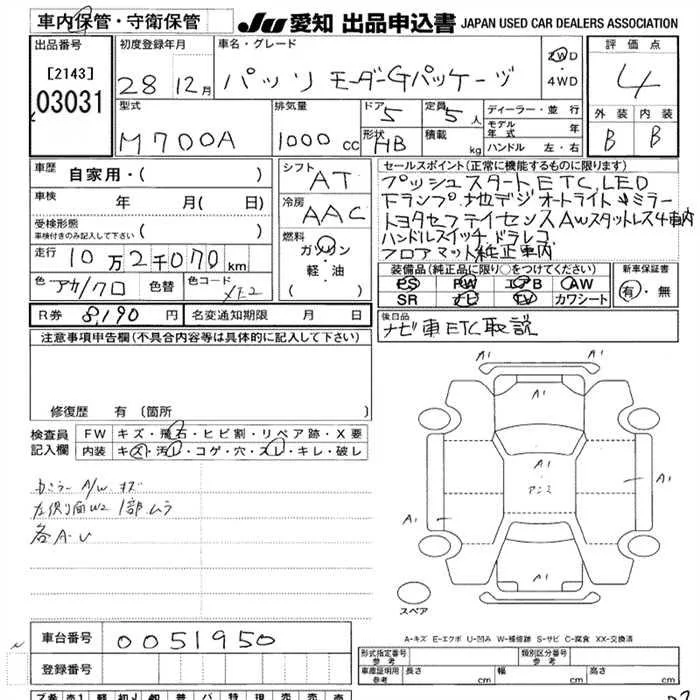 車内保管・守衛保管
JU 愛知 出品申込書 JAPAN USED CAR DEALERS ASSOCIATION
出品番号
[2143]
03031
初度登録年月
28 12月
車名・グレード
パッソ モーダーGパッケージ
2WD・
4WD
評価点
4
型式
M700A
排気量
1000 cc
ドア 5
形状 HB
定員 5 人
積載 kg
ディーラー・並行
モデル年式 年
ハンドル 左・右
外装 内装
B B
車歴 自家用・( )
車検 年 月( 日)
受検形態
(車検付きのみ記入して下さい) ( )
走行 10万2千070 km
色 アカ/クロ 色替 色コード
R券 8,190 円 名変通知期限 月 日
シフト
AT
冷房
AAC
燃料
ガソリン
・軽・油
( )
セールスポイント(正常に機能するものに限ります)
プッシュスタート,ETC,LED
地デジ オートライト
スタットレス4車内
ハンドルスイッチ,ドラレコ,
フロアマット純正車内
装備品(純正品に限り○をつけてください)
PS PW エアB AW
SR ナビ TV カワシート
新車保証書
有・無
後日品
ナビ 車 ETC取説
注意事項申告欄(不具合内容等は具体的に記入して下さい)
修復歴 有 (箇所 )
検査員記入欄
FW キズ・飛石・ヒビ割・リペア跡・X要
内装 キズ・汚レ・コゲ・穴・スレ・キレ・破レ
A/W キズ
W2 1部ムラ
各A・U
A1
A1
A1
A1
A1
A1
A1
スペア
A-キズ E-エクボ U-凹み W-補修跡 S-サビ C-腐食 XX-交換済
車台番号 0051950
登録番号
形式指定番号 参考
類別区分番号 参考
車庫証明用 参考 長さ cm 幅 cm 高さ cm